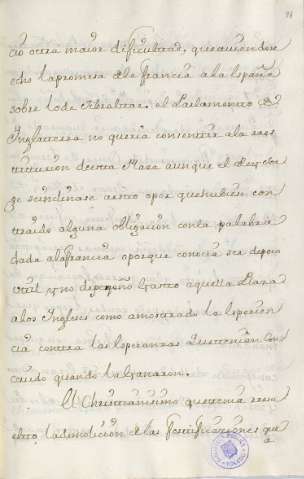 ció otra maior dificultad, que auiendose
echo la promesa de la francia a la españa
sobre lo de Gibraltar, el Parlamento de
Inglaterra no queria consentir a la res
titucion de esta Plaza aunque el Rey Jor
ge se inclinase a esto o por que hubiese con
traido alguna obligacion con la palabra
dada a la francia o porque conocia ser de poco
util y no de pequeño gasto aquella Plaza
a los Ingleses como a mostrado la esperien
cia contra las esperanzas que tenian con
cuando la ganaron.
El Christianisimo que tenia reso
la demolicion de las fortificaciones que
a